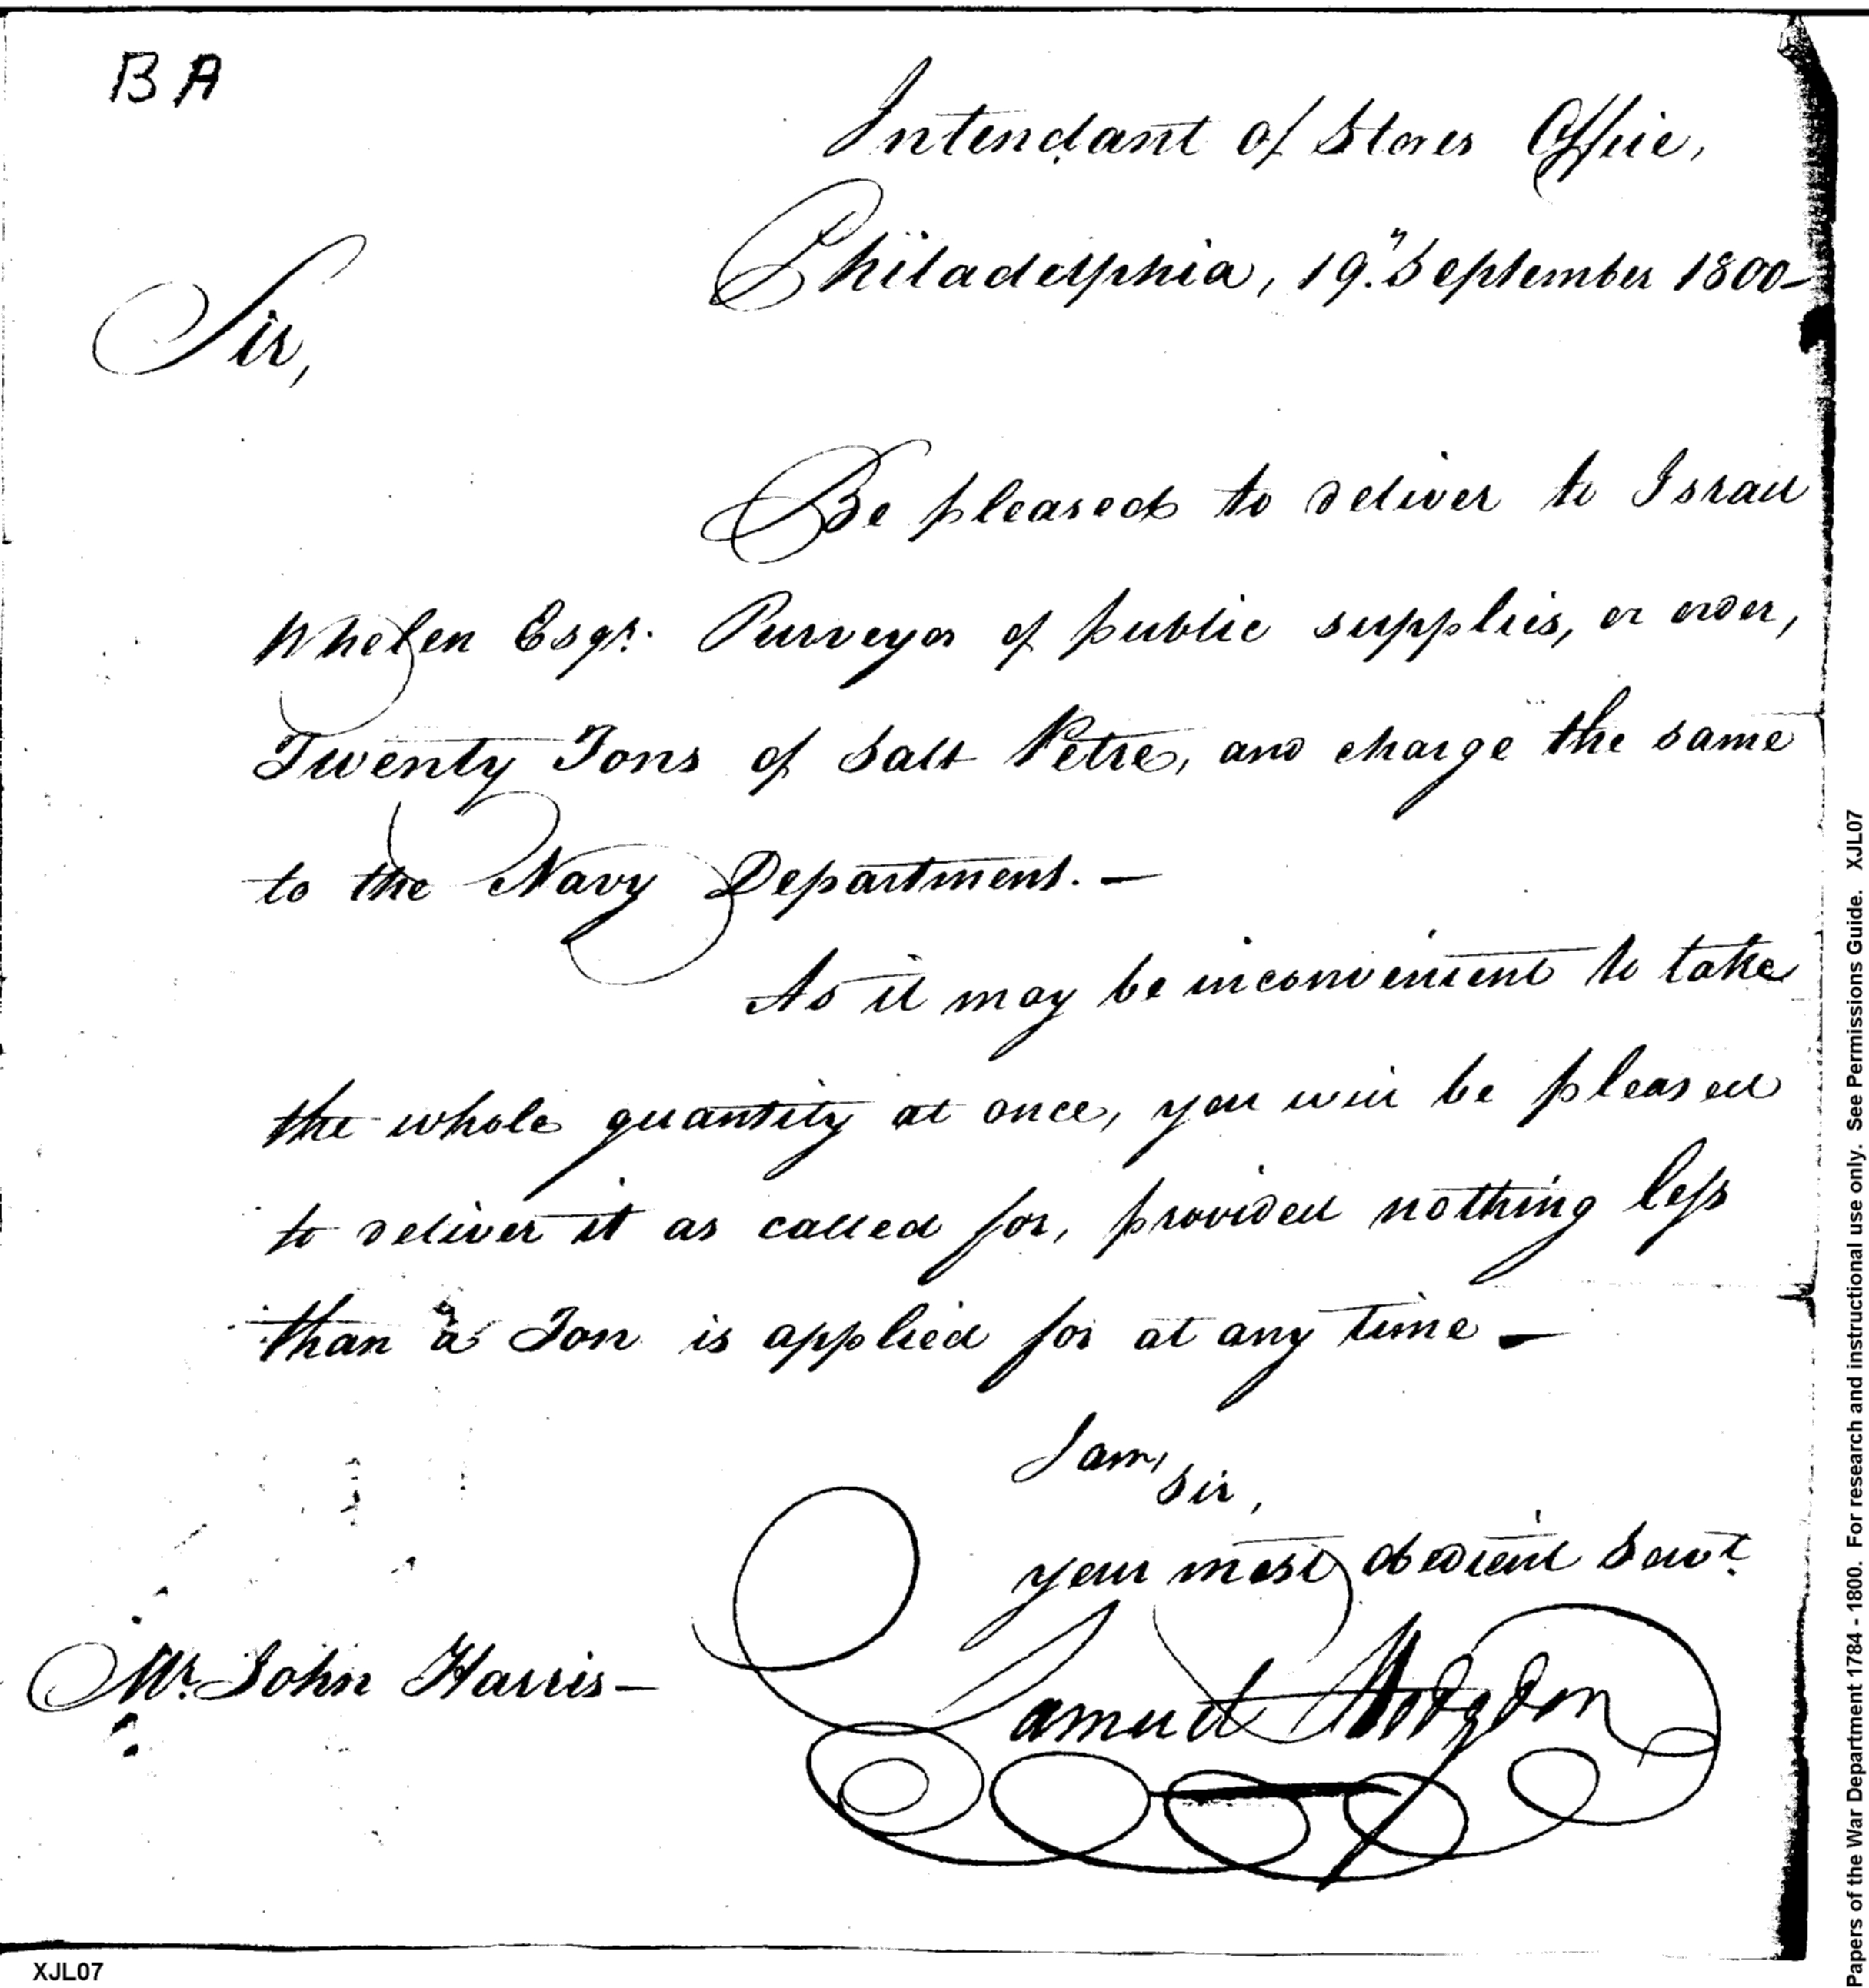 BA
Intendant of Stores Office,
Philadelphia, 19." September 1800-
Sir,
Be pleased to deliver to Israel
Whelen Esqr. Purveyor of public supplies, or order,
Twenty Tons of Salt Petre, and charge the same
to the Navy Department. —
As it may be inconvenient to take
the whole quantity at once, you will be pleased
to deliver it as called for, provided nothing less
than a Ton is applied for at any time —
I am,
Sir,
your most obedient Servt.
Samuel Hodgdon
Mr. John Harris —
XJL07
Papers of the War Department 1784 - 1800. For research and instructional use only. See Permissions Guide. XJL07